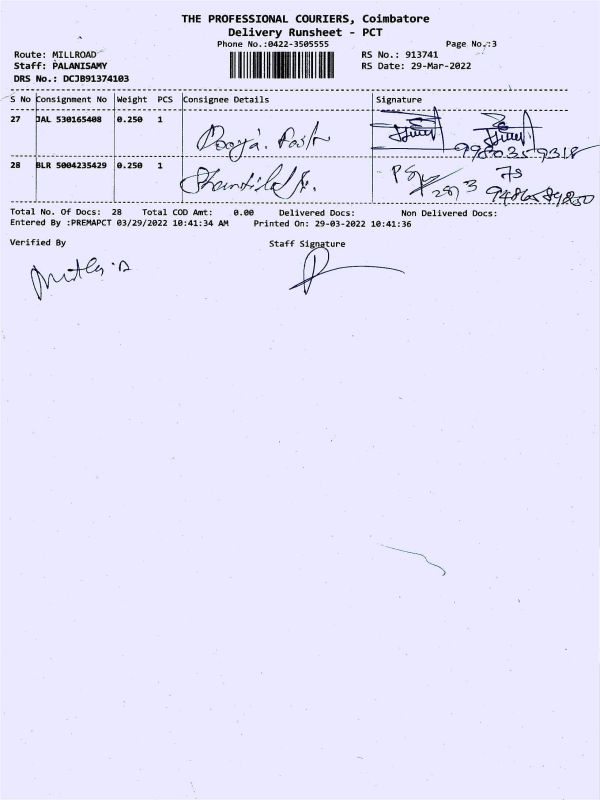 THE PROFESSIONAL COURIERS, Coimbatore
Delivery Runsheet - PCT
Phone No.:0422-3505555 Page No.:3
Route: MILLROAD RS No.: 913741
Staff: PALANISAMY RS Date: 29-Mar-2022
DRS No.: DCJB91374103
S No Consignment No Weight PCS Consignee Details Signature
27 JAL 530165408 0.250 1
Pooja.
9980359318
28 BLR 5004235429 0.250 1
Total No. Of Docs: 28 Total COD Amt: 0.00 Delivered Docs: Non Delivered Docs:
Entered By :PREMAPCT 03/29/2022 10:41:34 AM Printed On: 29-03-2022 10:41:36
Verified By Staff Signature